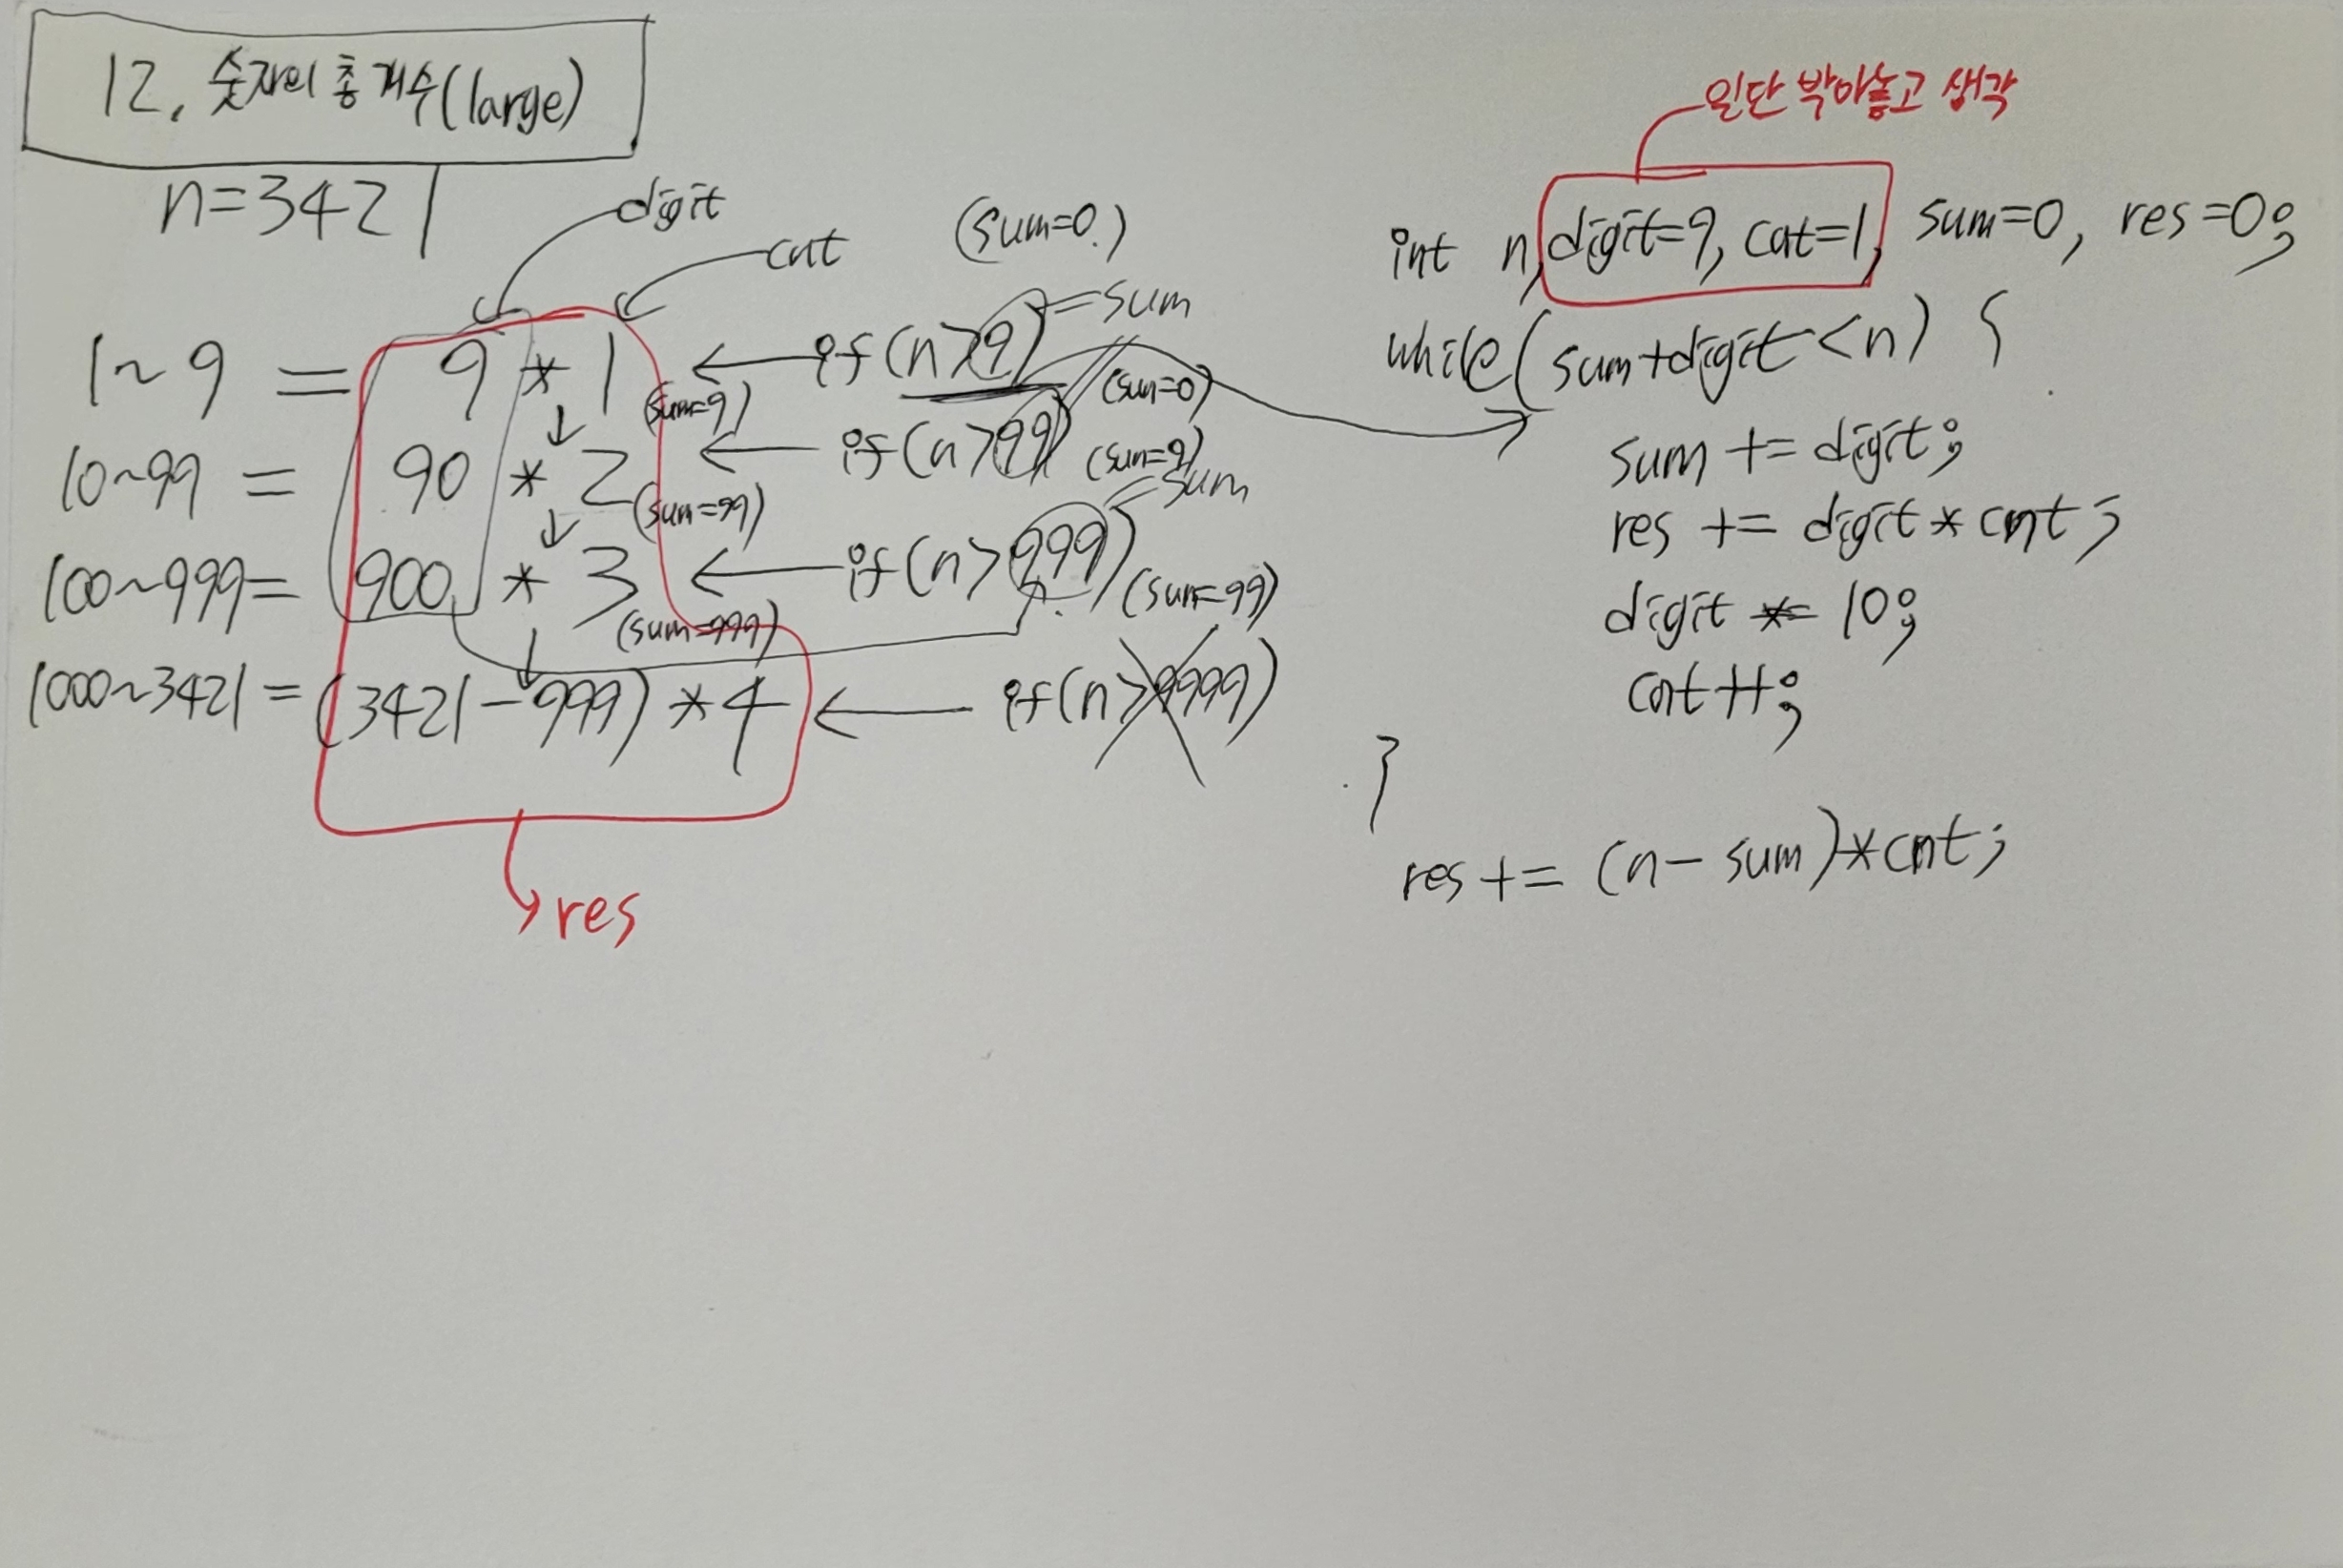 12. 숫자의 총 개수(large)
n=3421
digit
cnt
(sum=0.)
1~9 = 9 * 1 ← if(n>9) = sum
(sum=9)
(sum=0)
10~99 = 90 * 2 ← if(n>99) (sum=9)
(sum=99)
sum
100~999= 900 * 3 ← if(n>999) (sum=99)
(sum=999)
1000~3421 = (3421-999) * 4 ← if(n>9999)
res
일단 박아놓고 생각
int n, digit=9, cnt=1, sum=0, res=0;
while(sum+digit<n) {
sum += digit;
res += digit * cnt;
digit *= 10;
cnt++;
}
res += (n- sum)*cnt;